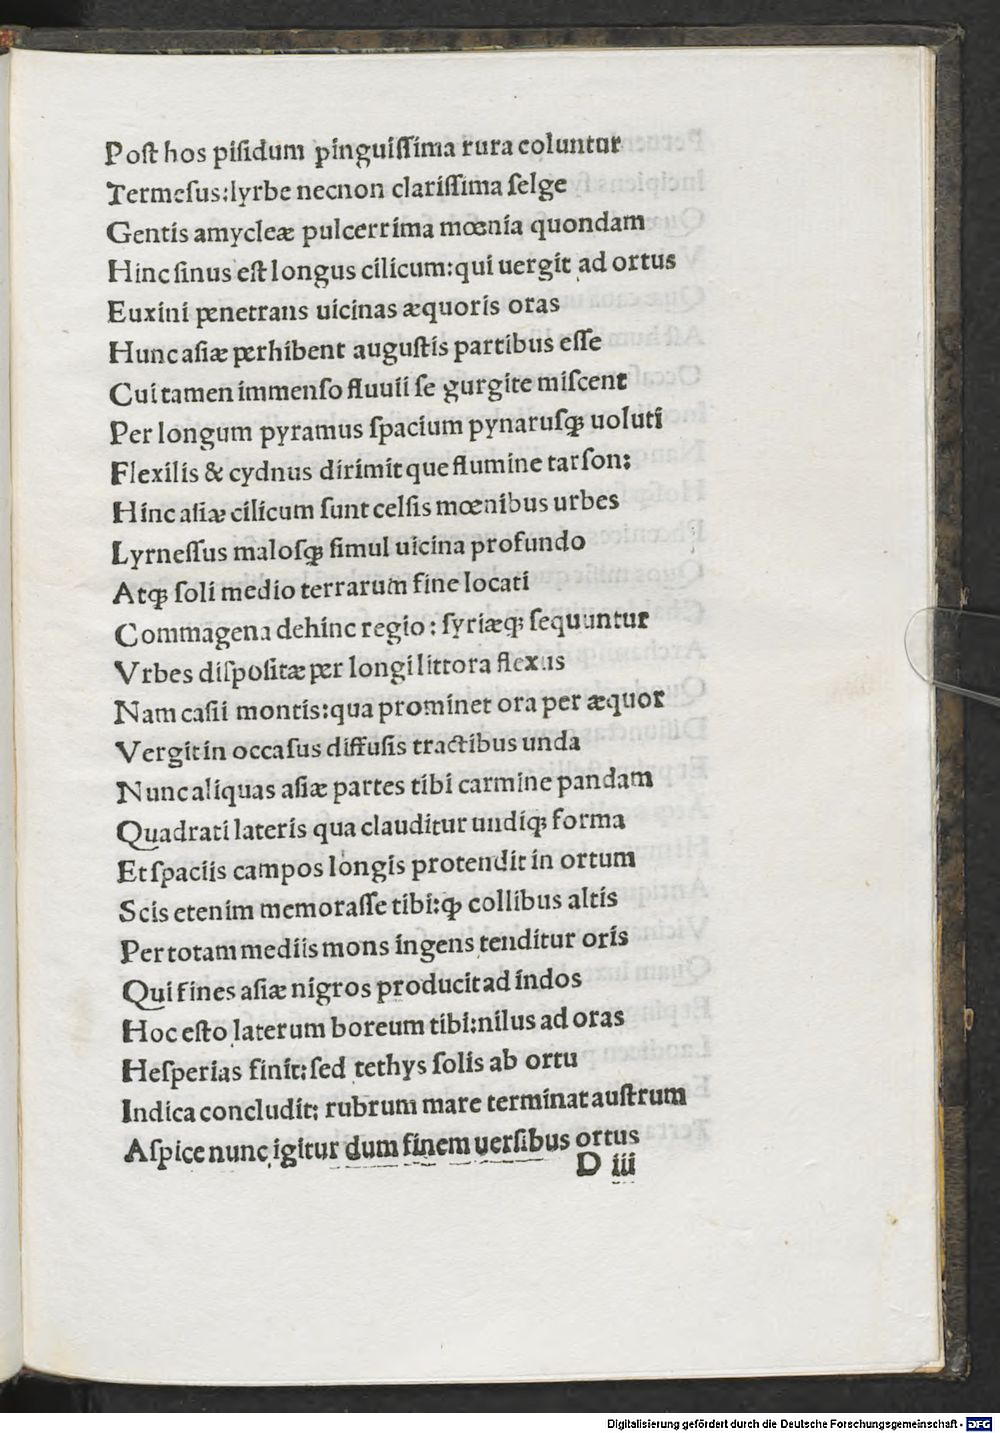 Poſt hos piſidum pinguiſſima rura coluntur
Termeſus:lyrbe necnon clariſſima ſelge
Gentis amycleæ pulcerrima mœnia quondam
Hinc ſinus eſt longus cilicum:qui uergit ad ortus
Euxini penetrans uicinas æquoris oras
Hunc aſiæ perhibent auguſtis partibus eſſe
Cui tamen immenſo fluuii ſe gurgite miſcent
Per longum pyramus ſpacium pynaruſqꝫ uoluti
Flexilis & cydnus dirimit que flumine tarſon:
Hinc aſiæ cilicum ſunt celſis mœnibus urbes
Lyrneſſus maloſqꝫ ſimul uicina profundo
Atqꝫ ſoli medio terrarum fine locati
Commagena dehinc regio: ſyriæqꝫ ſequuntur
Vrbes diſpoſitæ per longi littora flexus
Nam caſii montis:qua prominet ora per æquor
Vergit in occaſus diffuſis tractibus unda
Nunc aliquas aſiæ partes tibi carmine pandam
Quadrati lateris qua clauditur undiqꝫ forma
Et ſpaciis campos longis protendit in ortum
Scis etenim memoraſſe tibi:qꝫ collibus altis
Per totam mediis mons ingens tenditur oris
Qui fines aſiæ nigros producit ad indos
Hoc eſto laterum boreum tibi:nilus ad oras
Heſperias finit:ſed tethys ſolis ab ortu
Indica concludit: rubrum mare terminat auſtrum
Aſpice nunc igitur dum finem uerſibus ortus
D iii
Digitalisierung gefördert durch die Deutsche Forschungsgemeinschaft - DFG